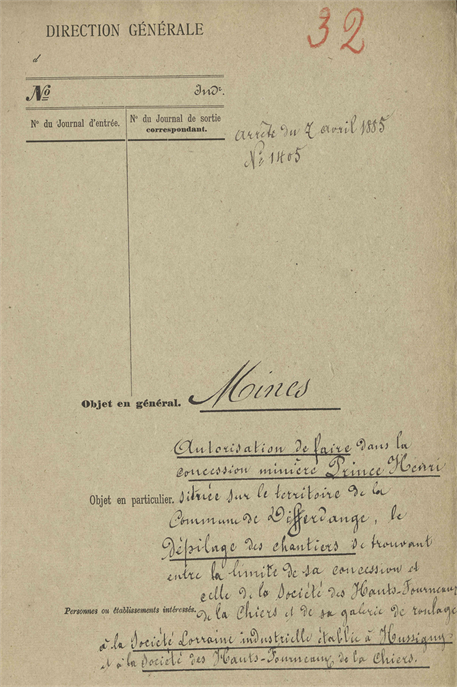 DIRECTION GÉNÉRALE
32
d
No Indr.
No du Journal d'entrée.
No du Journal de sortie
correspondant.
Arrêté du 7 avril 1885
No 1405
Objet en général. Mines
Autorisation de faire dans la
concession minière Prince Henri
Objet en particulier. située sur le territoire de la
Commune de Differdange, le
Dépilage des chantiers se trouvant
entre la limite de sa concession et
celle de la Société des Hauts-Fourneaux
Personnes ou établissements intéressés. de la Chiers et de sa galerie de roulage
à la Société Lorraine industrielle établie à Hussigny
et à la Société des Hauts-Fourneaux de la Chiers.